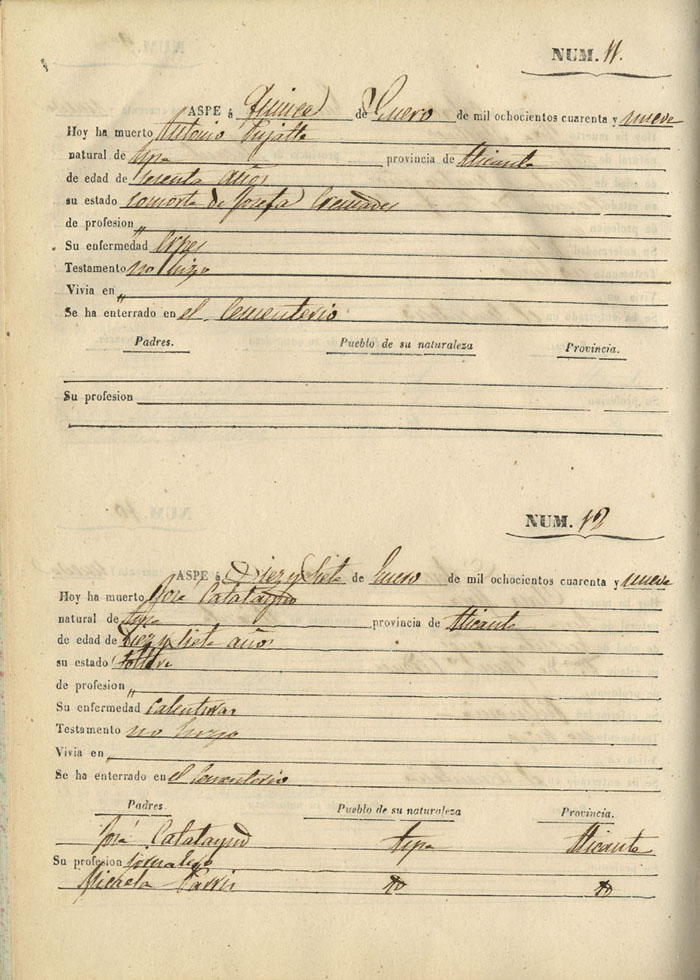 NUM. 11.
ASPE á Quince de Enero de mil ochocientos cuarenta y nueve
Hoy ha muerto Antonio Pujalte
natural de Aspe provincia de Alicante
de edad de Sesenta años
su estado Consorte de Josefa Cremades
de profesion "
Su enfermedad
Testamento no hizo
Vivia en "
Se ha enterrado en el Cementerio
Padres. Pueblo de su naturaleza Provincia.
Su profesion
NUM. 12
ASPE á Diez y Siete de Enero de mil ochocientos cuarenta y nueve
Hoy ha muerto José Calatayud
natural de Aspe provincia de Alicante
de edad de Diez y siete años
su estado Soltero
de profesion "
Su enfermedad Calenturas
Testamento no hizo
Vivia en "
Se ha enterrado en el Cementerio
Padres. Pueblo de su naturaleza Provincia.
José Calatayud Aspe Alicante
Su profesion Jornalero
Micaela